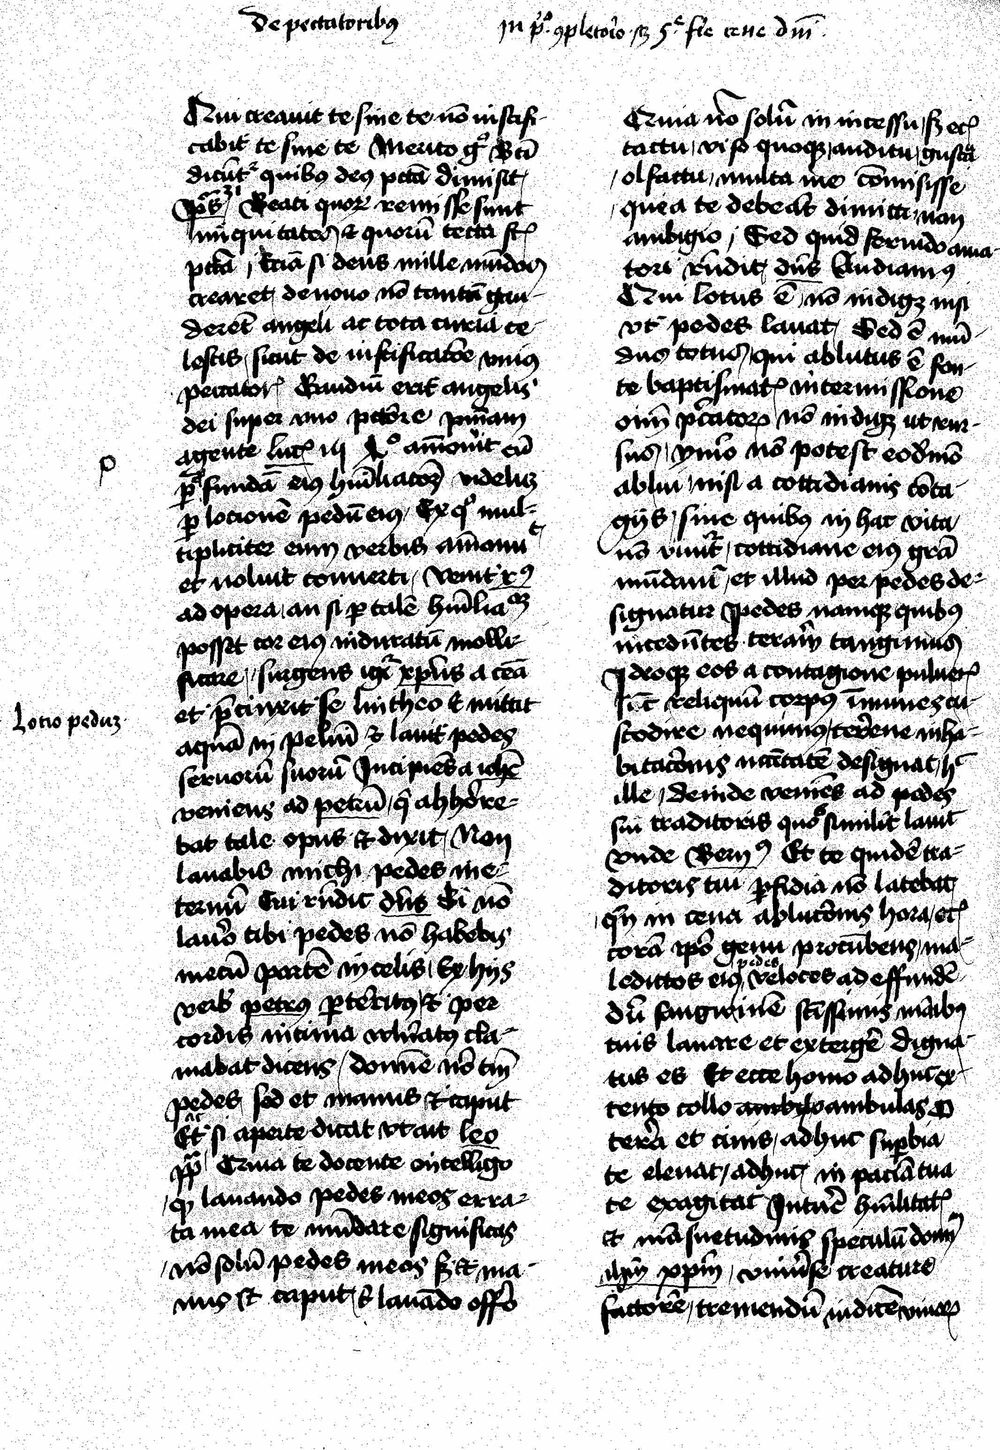 De peccatoribus
In p'mo 9pletorio sz 5e fie cene dni
Qui creauit te sine te nō iustifi-
cabit te sine te Merito g° Bti
dicūtr quibus deus pctā dimisit
ps 31 Beati quorum remisse sunt
iniquitates et quorū tecta st
pctā / Etiā si deus mille mūdos
crearet de nouo nō tantū gau-
derēt angeli ac tota curia ce-
lestis sicut de iustificatōe unius
peccatoris Gaudiū erit angelis
dei super uno pctōre pniam
agente luc iij amouit eū
p fundā eius hūiliatōz videlicz
p locionē pedū eius Ex quo mul-
tipliciter eum verbis amonuit
et noluit conuerti venit xps
ad opera an si p talē hūilia
posset cor eius induratū molli-
ficare / surgens igr xpus a cēa
et p̄cinxit se lintheo et mittit
aquā in peluī et lauit pedes
seruorū suorū Incipiēs a iohē
veniens ad petrū q abhorre-
bat tale opus et dixit Non
lauabis michi pedes in e-
ternū Cui rndit dns Si nō
lauero tibi pedes nō habebis
mecū partē in celis Ex hijs
verbis petrus pterritus et per
cordis intima vulneratus cla-
mabat dicens / domine nō tm
pedes sed et manus et caput
Ac si aperte dicat vt ait leo
pp Quia te docente intelligo
q lauando pedes meos erra-
ta mea te mūdare significas
nō solū pedes meos sz et ma-
nus et caput et lauādo offero
Lotio peduz
Quia nō solū in incessu sz et
tactu viso quoque auditu gustu
olfactu multa me cōmisisse
que a te debeāt dimitti non
ambigio / Sed quid formido ama-
tori rndit dns Audiamus
Qui lotus ē nō indigz nisi
vt pedes lauat Sed ē mū-
dus totus qui ablutus ē fon-
te baptismatis intermissione
oim pctatorum nō indigz ut rur-
sus ymo nō potest eodmo
ablui nisi a cottidianis cōta-
gijs sine quibus in hac vita
nō viuitr cottidiane eius grā
mūdari et illud per pedes de-
signatur Pedes namque quibus
incedūtes teram tangimus
Ideoque eos a contagione pulueris
sic reliquū corpus īmunes cu-
stodire nequimus terrene inha-
bitacōnis necitatē designat hec
ille / Deinde veniēs ad pedes
sui traditoris quos similit lauit
vnde Bern9 Et te quidē tra-
ditoris tui pfidia nō latebat
qn in cena ablucōnis hora et
corā ipso genu procūbens ma-
ledictos eius pedes veloces ad effundē-
dū sanguinē sctissimis māibus
tuis lauare et extergē digna-
tus es Et ecce homo adhuc ex-
tento collo ambulas o
terra et cinis adhuc supbia
te eleuat adhuc in paciā tua
te exagitat Intuere hūilitatis
et māsuetudinis speculū dom
ihm xpm vniuse creature
factorē tremendū iudicē viuorum